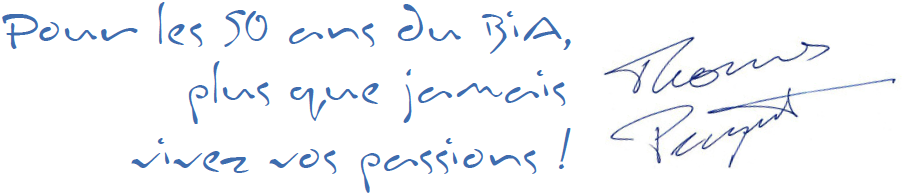 Pour les 50 ans du BiA,
plus que jamais
vivez vos passions !
Thomas
Pesquet